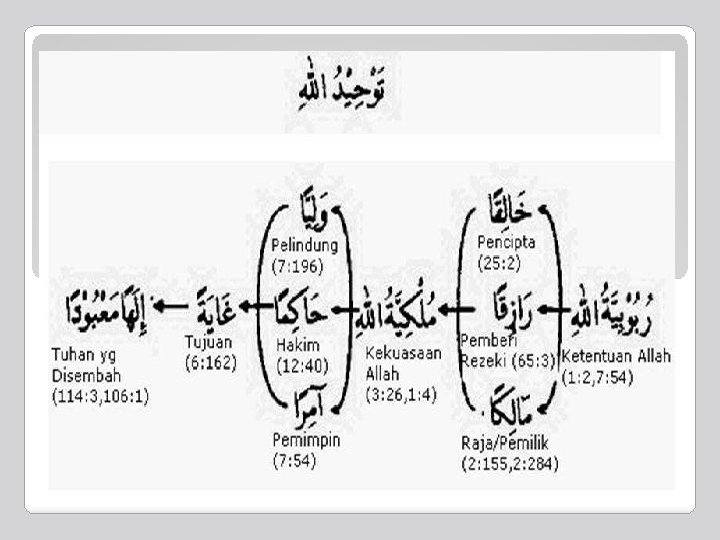 تَوْحِيْدُ اللهِ
رُبُوْبِيَّةُ اللهِ
Ketentuan Allah
(1:2,7:54)
خَالِقًا
Pencipta
(25:2)
رَازِقًا
Pemberi
Rezeki (65:3)
مَالِكًا
Raja/Pemilik
(2:155,2:284)
مُلْكِيَّةُ اللهِ
Kekuasaan
Allah
(3:26,1:4)
وَلِيًّا
Pelindung
(7:196)
حَاكِمًا
Hakim
(12:40)
آمِرًا
Pemimpin
(7:54)
غَايَةً
Tujuan
(6:162)
إِلَهًا مَعْبُوْدًا
Tuhan yg
Disembah
(114:3,106:1)